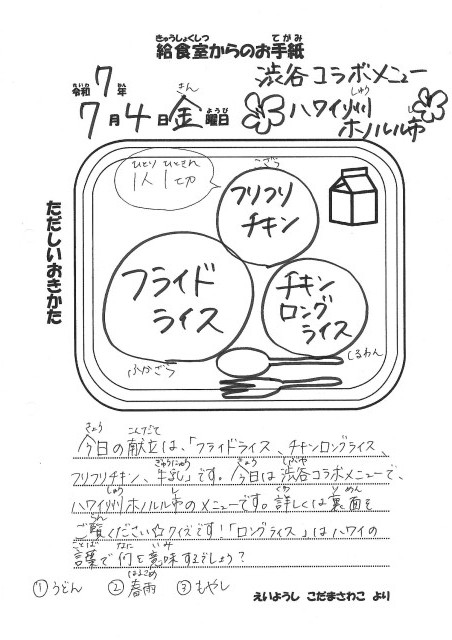 給食室からのお手紙
令和7年
7月4日金曜日
渋谷コラボメニュー
ハワイ州
ホノルル市
ただしいおきかた
1人1切
こざら
フリフリ
チキン
フライド
ライス
ふかざら
チキン
ロング
ライス
しるわん
今日の献立は、「フライドライス、チキンロングライス、
フリフリチキン、牛乳」です。今日は渋谷コラボメニューで、
ハワイ州ホノルル市のメニューです。詳しくは裏面を
ご覧ください☆クイズです!「ロングライス」はハワイの
言葉で何を意味するでしょう?
①うどん ②春雨 ③もやし
えいようし こだまさわこ より